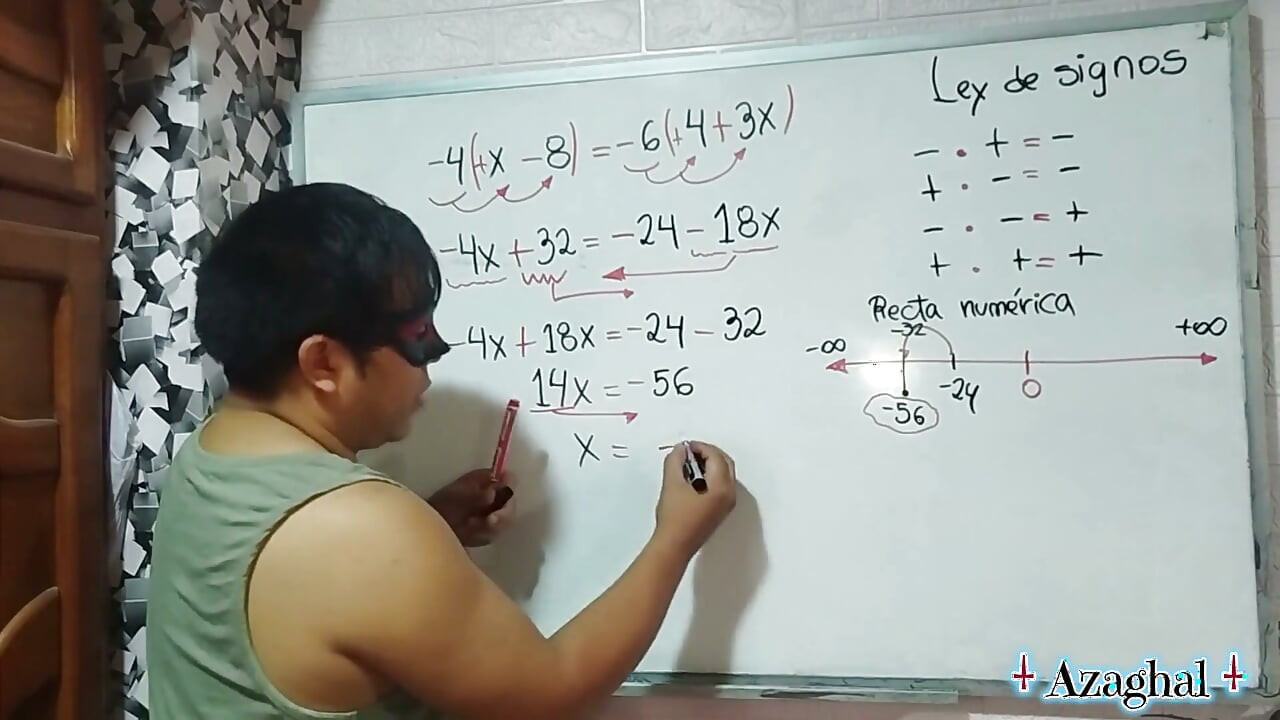 -4(+x -8) = -6(+4+3x)
-4x +32 = -24 -18x
-4x+18x = -24 - 32
14x = -56
x = -
Ley de signos
- . + = -
+ . - = -
- . - = +
+ . + = +
Recta numérica
-32
-∞ +∞
-24 0
-56
Azaghal